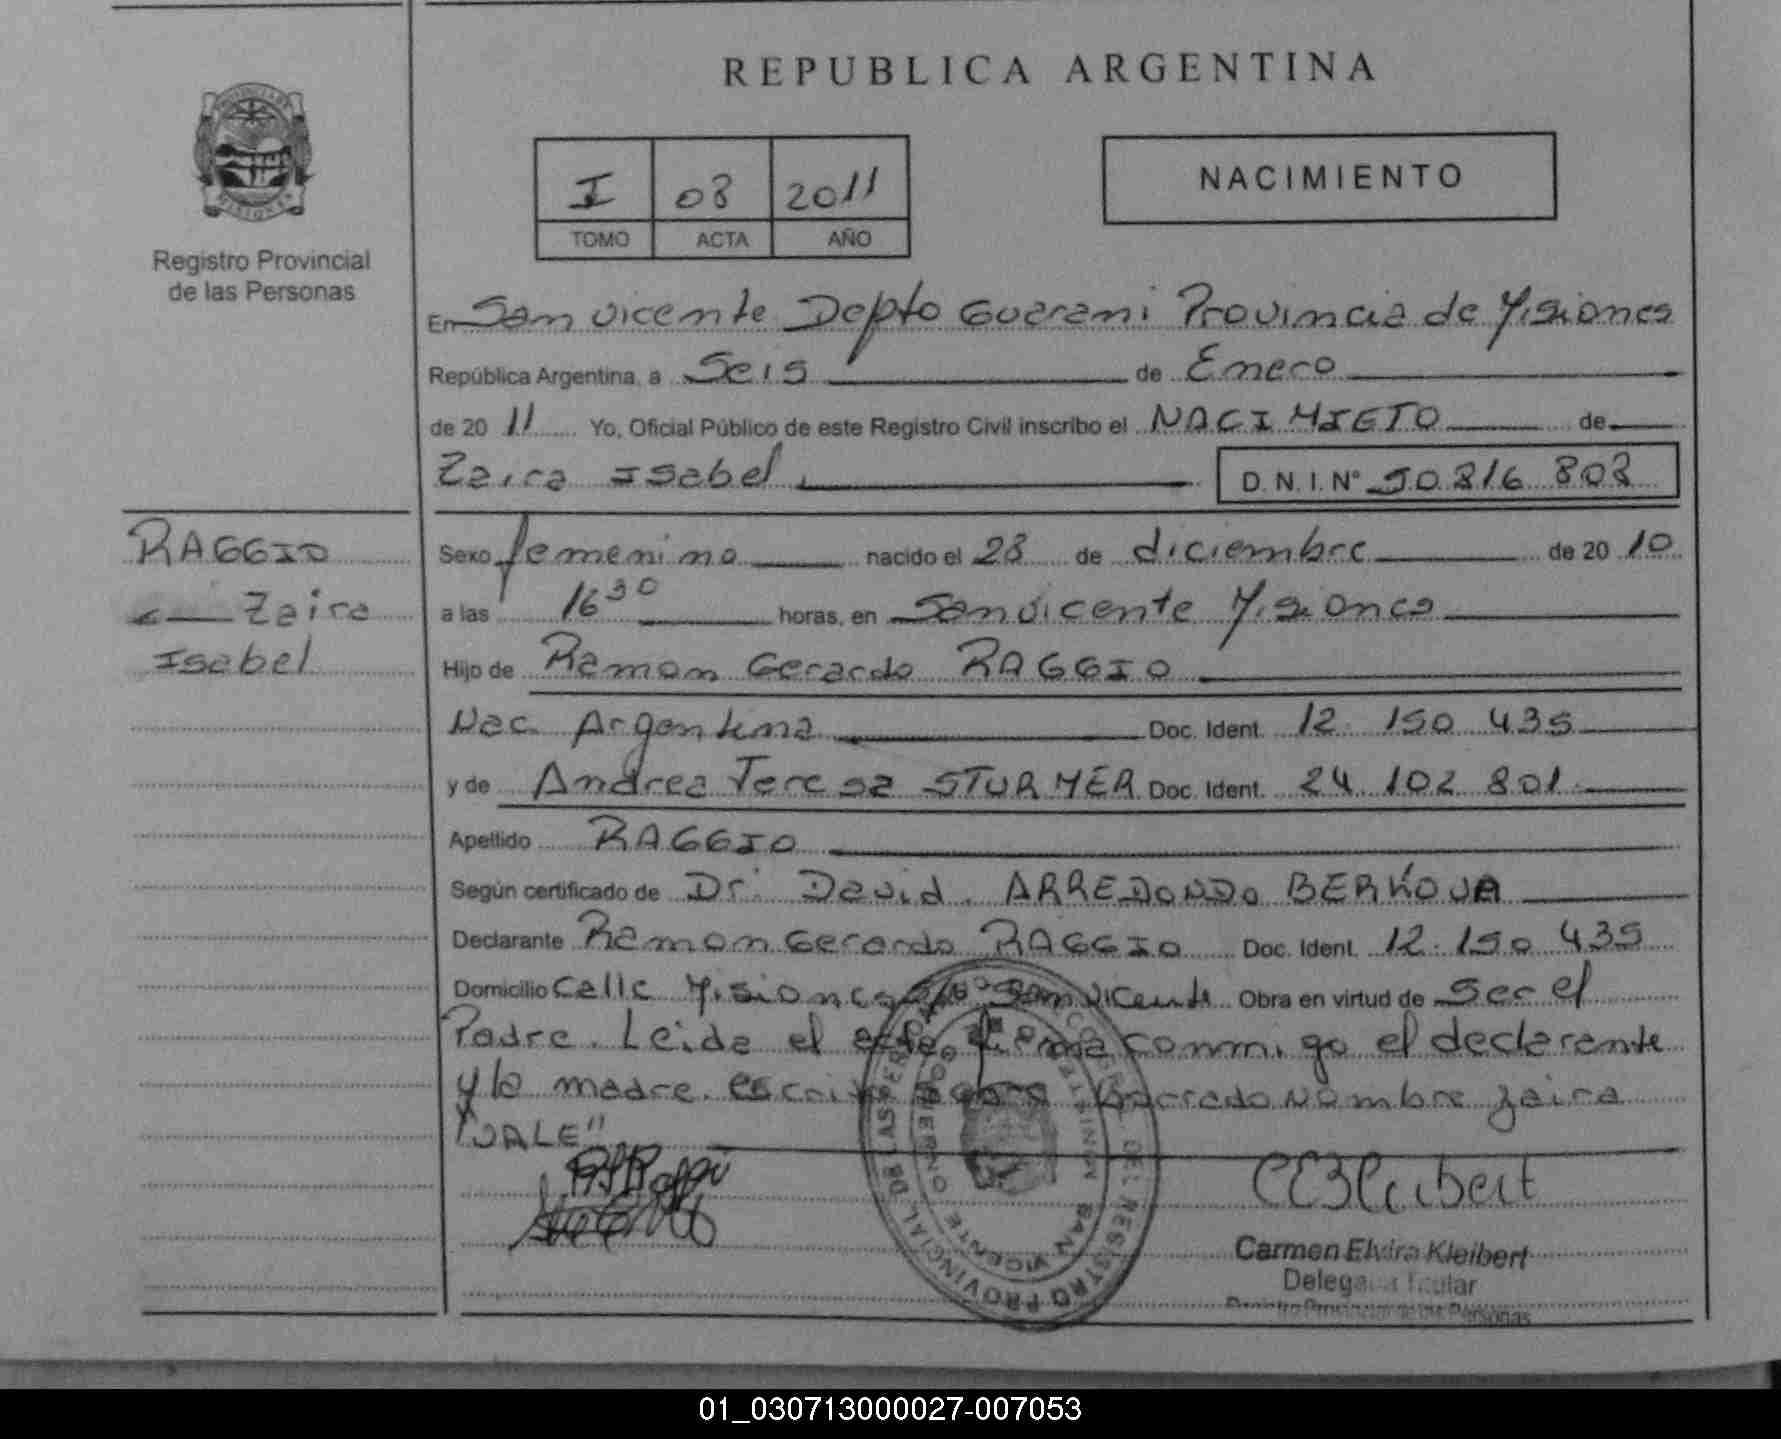 REPUBLICA ARGENTINA
PROVINCIA DE MISIONES
Registro Provincial
de las Personas
I 08 2011
TOMO ACTA AÑO
NACIMIENTO
En San Vicente Depto Guarani Provincia de Misiones
República Argentina, a Seis de Enero
de 20 11 Yo, Oficial Público de este Registro Civil inscribo el NACIMIETO de
Zaira Isabel D. N. I. N° 50.816.808
RAGGIO
Zaira
Isabel
Sexo femenino nacido el 28 de diciembre de 20 10
a las 16 30 horas, en San Vicente Misiones
Hijo de Ramon Gerardo RAGGIO
Nac. Argentina Doc. Ident. 12.150.435
y de Andrea Teresa STURMER Doc. Ident. 24.102.801
Apellido RAGGIO
Según certificado de Dr. David. ARREDONDO BERKOVA
Declarante Ramon Gerardo RAGGIO Doc. Ident. 12.150.435
Domicilio Calle Misiones s/n San Vicente Obra en virtud de Ser el
Padre. Leida el acta firma conmigo el declarante
y la madre. escrito sobre borrado Nombre Zaira
"VALE"
CEKleibert
Carmen Elvira Kleibert
Delegada Titular
Registro Provincial de las Personas
REGISTRO PROVINCIAL DE LAS PERSONAS
SAN VICENTE
01_030713000027-007053